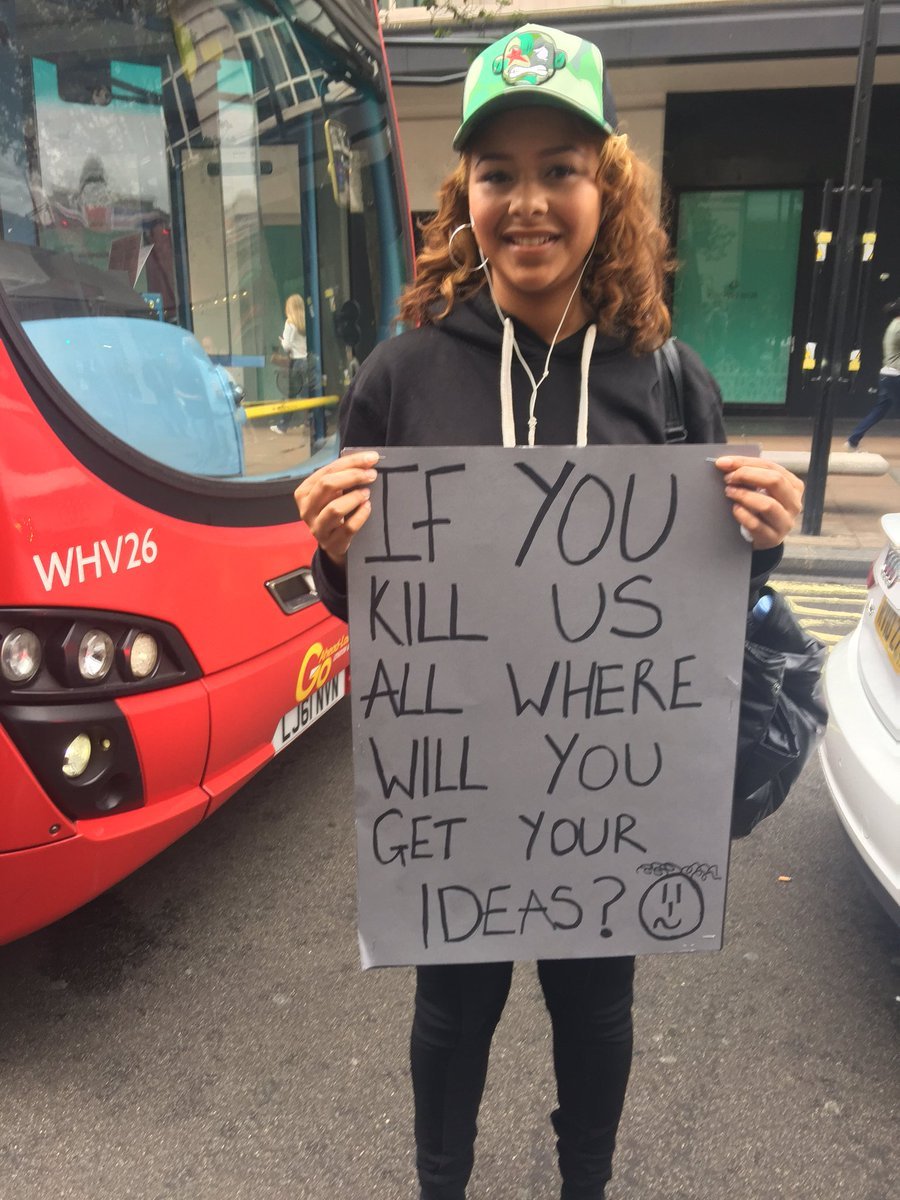 IF YOU
KILL US
ALL WHERE
WILL YOU
GET YOUR
IDEAS?
WHV26
Go
LJ61 NVN